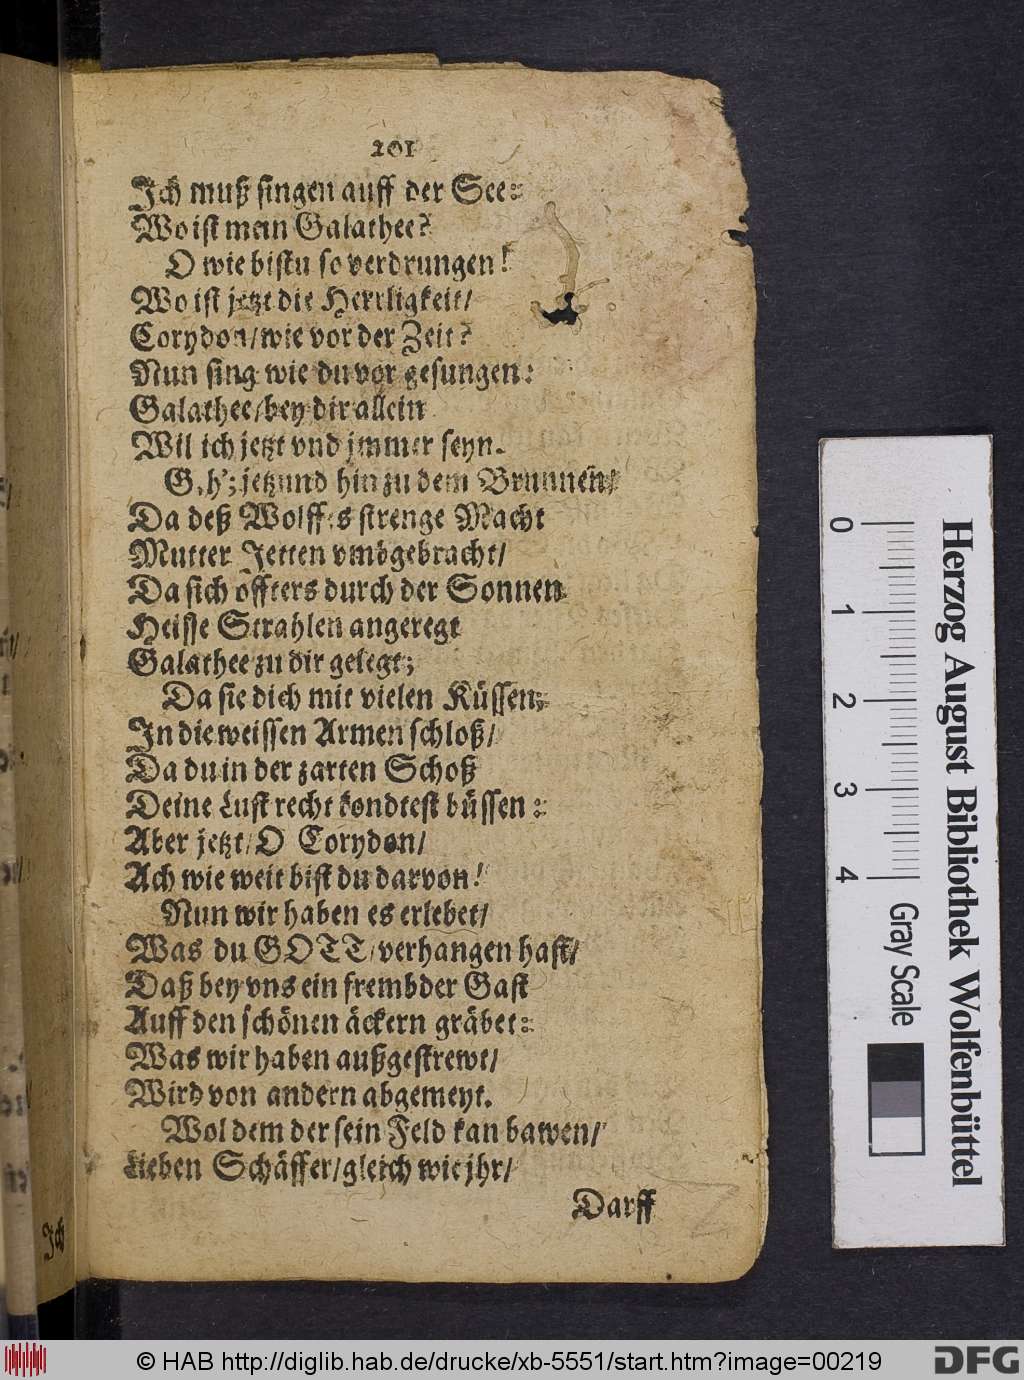 201
Ich muß singen auff der See:
Wo ist mein Galathee?
O wie bistu so verdrungen!
Wo ist jetzt die Herrligkeit/
Corydon/wie vor der Zeit?
Nun sing wie du vor gesungen:
Galathee/bey dir allein
Wil ich jetzt vnd jmmer seyn.
jetzund hin zu dem Brunnen/
Da deß Wolffes strenge Macht
Mutter Jetten vmbgebracht/
Da sich öffters durch der Sonnen
Heisse Strahlen angeregt
Galathee zu dir gelegt;
Da sie dich mit vielen Küssen
In die weissen Armen schloß/
Da du in der zarten Schoß
Deine Lust recht kondtest büssen:
Aber jetzt/O Corydon/
Ach wie weit bist du darvon!
Nun wir haben es erlebet/
Was du GOTT/verhangen hast/
Daß bey vns ein frembder Gast
Auff den schönen äckern gräbet:
Was wir haben außgestrewt/
Wird von andern abgemeyt.
Wol dem der sein Feld kan bawen/
Lieben Schäffer/gleich wie jhr/
Darff
Ich
0 1 2 3 4
Gray Scale
Herzog August Bibliothek Wolfenbüttel
© HAB http://diglib.hab.de/drucke/xb-5551/start.htm?image=00219
DFG